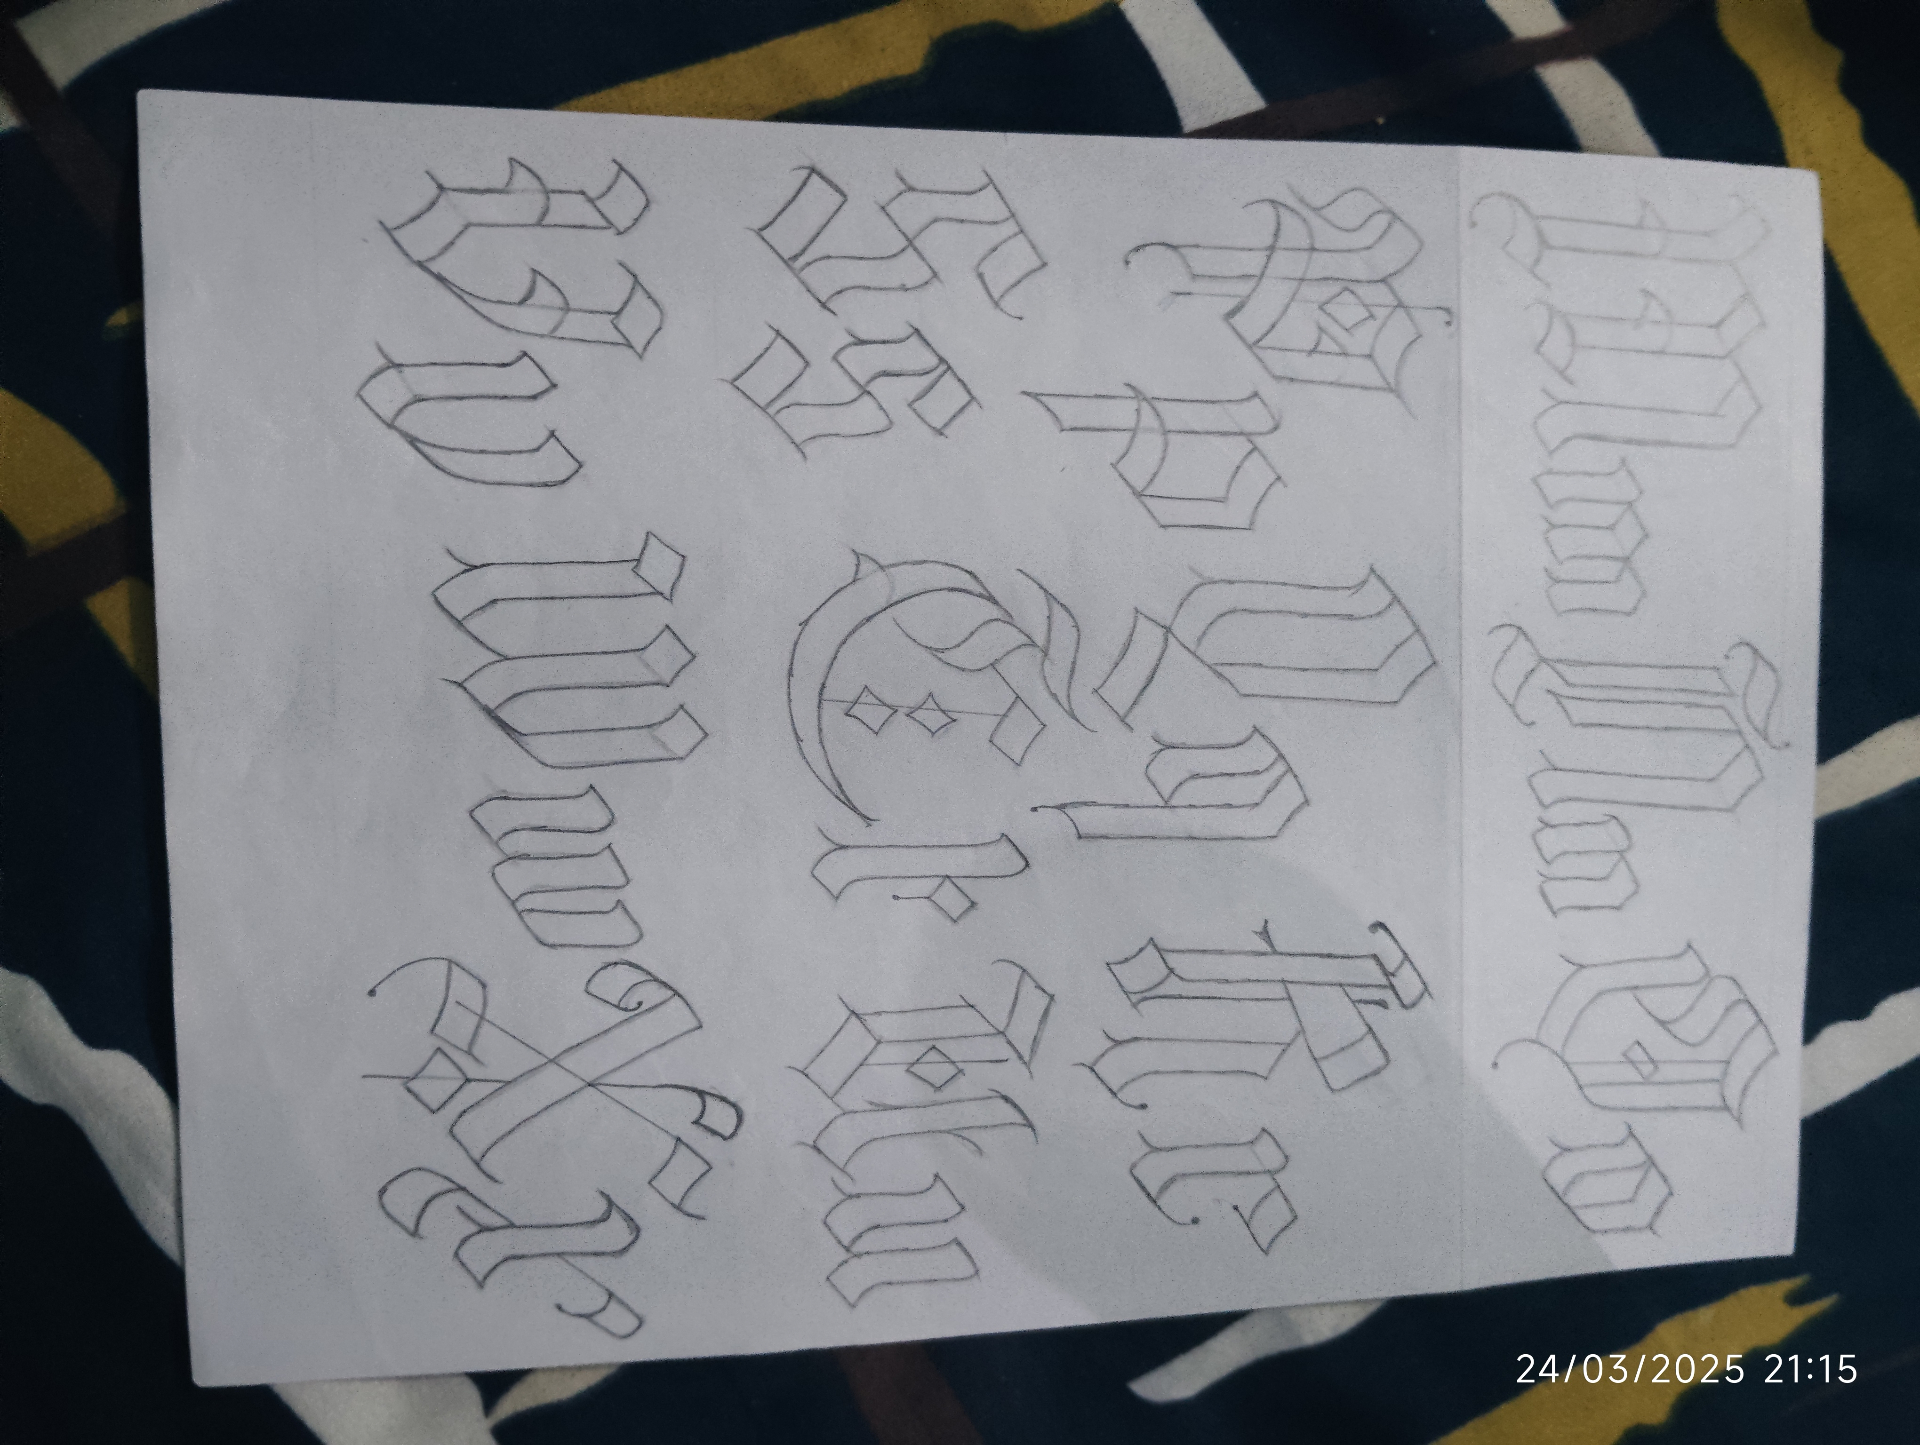 Mm Nn Oo
Pp Qq Rr
Ss Tt Uu
Vv Ww Xx
24/03/2025 21:15